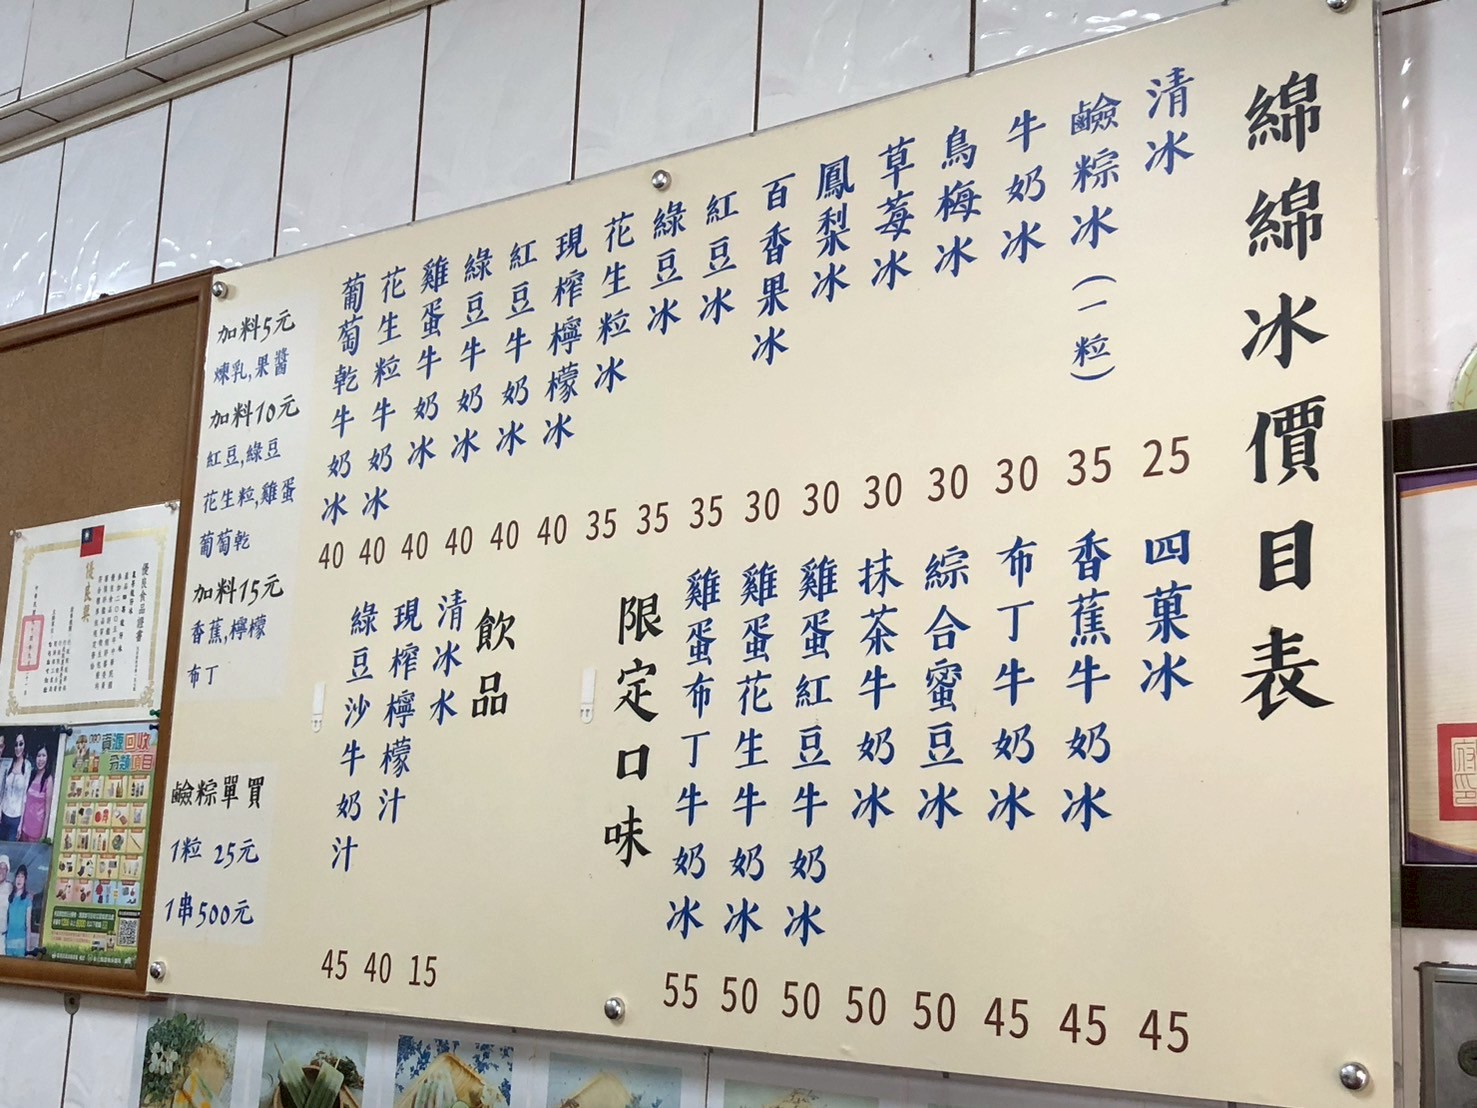 綿綿冰價目表
清冰 25
鹼粽冰(一粒) 35
牛奶冰 30
烏梅冰 30
草莓冰 30
鳳梨冰 30
百香果冰 30
紅豆冰 35
綠豆冰 35
花生粒冰 35
現榨檸檬冰 40
紅豆牛奶冰 40
綠豆牛奶冰 40
雞蛋牛奶冰 40
花生粒牛奶冰 40
葡萄乾牛奶冰 40
四菓冰 45
香蕉牛奶冰 45
布丁牛奶冰 45
綜合蜜豆冰 50
抹茶牛奶冰 50
雞蛋紅豆牛奶冰 50
雞蛋花生牛奶冰 50
雞蛋布丁牛奶冰 55
限定口味
飲品
清冰水 15
現榨檸檬汁 40
綠豆沙牛奶汁 45
加料5元
煉乳,果醬
加料10元
紅豆,綠豆
花生粒,雞蛋
葡萄乾
加料15元
香蕉,檸檬
布丁
鹼粽單買
1粒 25元
1串500元
優良食品證書
優良獎
資源回收
分類項目